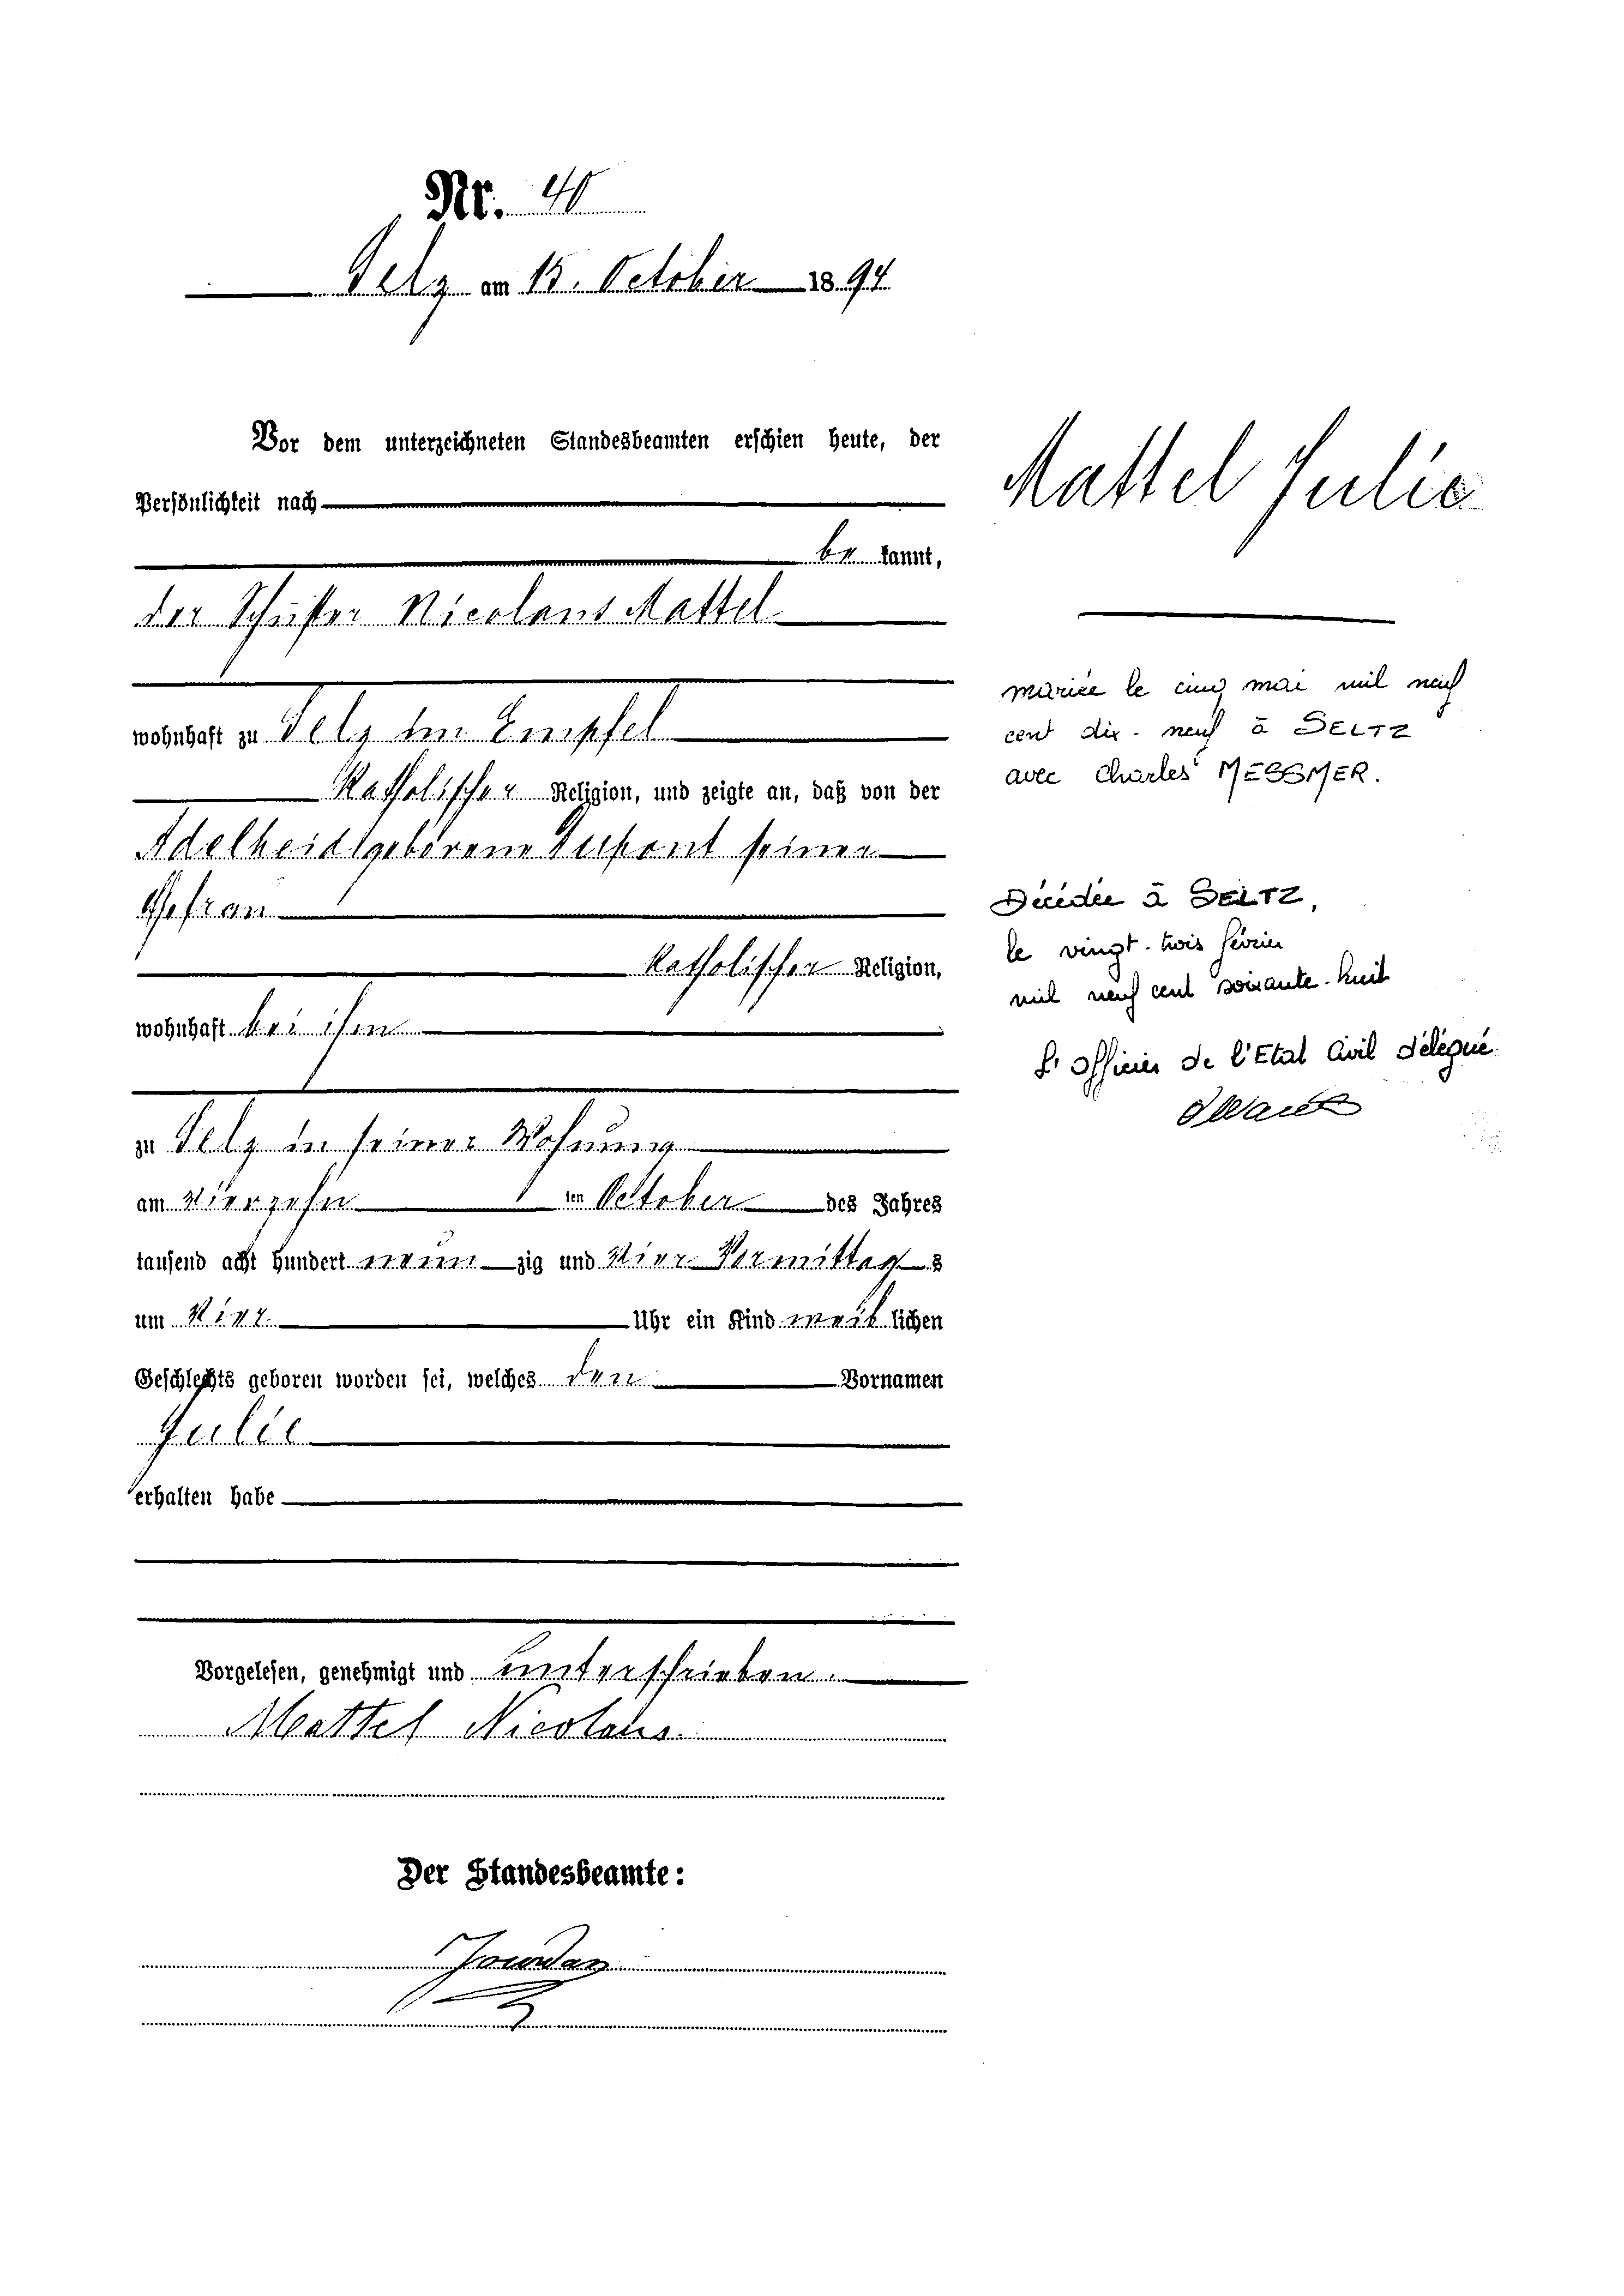 Nr. 40
Selz am 15. October 1894
Vor dem unterzeichneten Standesbeamten erschien heute, der
Persönlichkeit nach
be kannt,
der Schuster Nicolaus Mattel
wohnhaft zu Selz im Empfel
Katholischer Religion, und zeigte an, daß von der
Adelheid geborene Dupont seiner
Ehefrau
Katholischer Religion,
wohnhaft bei ihm
zu Selz in seiner Wohnung
am vierzehn ten October des Jahres
tausend acht hundert neun zig und vier Vormittag s
um vier Uhr ein Kind weib lichen
Geschlechts geboren worden sei, welches den Vornamen
Julie
erhalten habe
Vorgelesen, genehmigt und unterschrieben.
Mattel Nicolaus.
Der Standesbeamte:
Jourdan
Mattel Julie
mariée le cinq mai mil neuf
cent dix-neuf à SELTZ
avec Charles MESSMER.
Décédée à SELTZ,
le vingt-trois février
mil neuf cent soixante-huit
L'officier de l'Etat Civil délégué